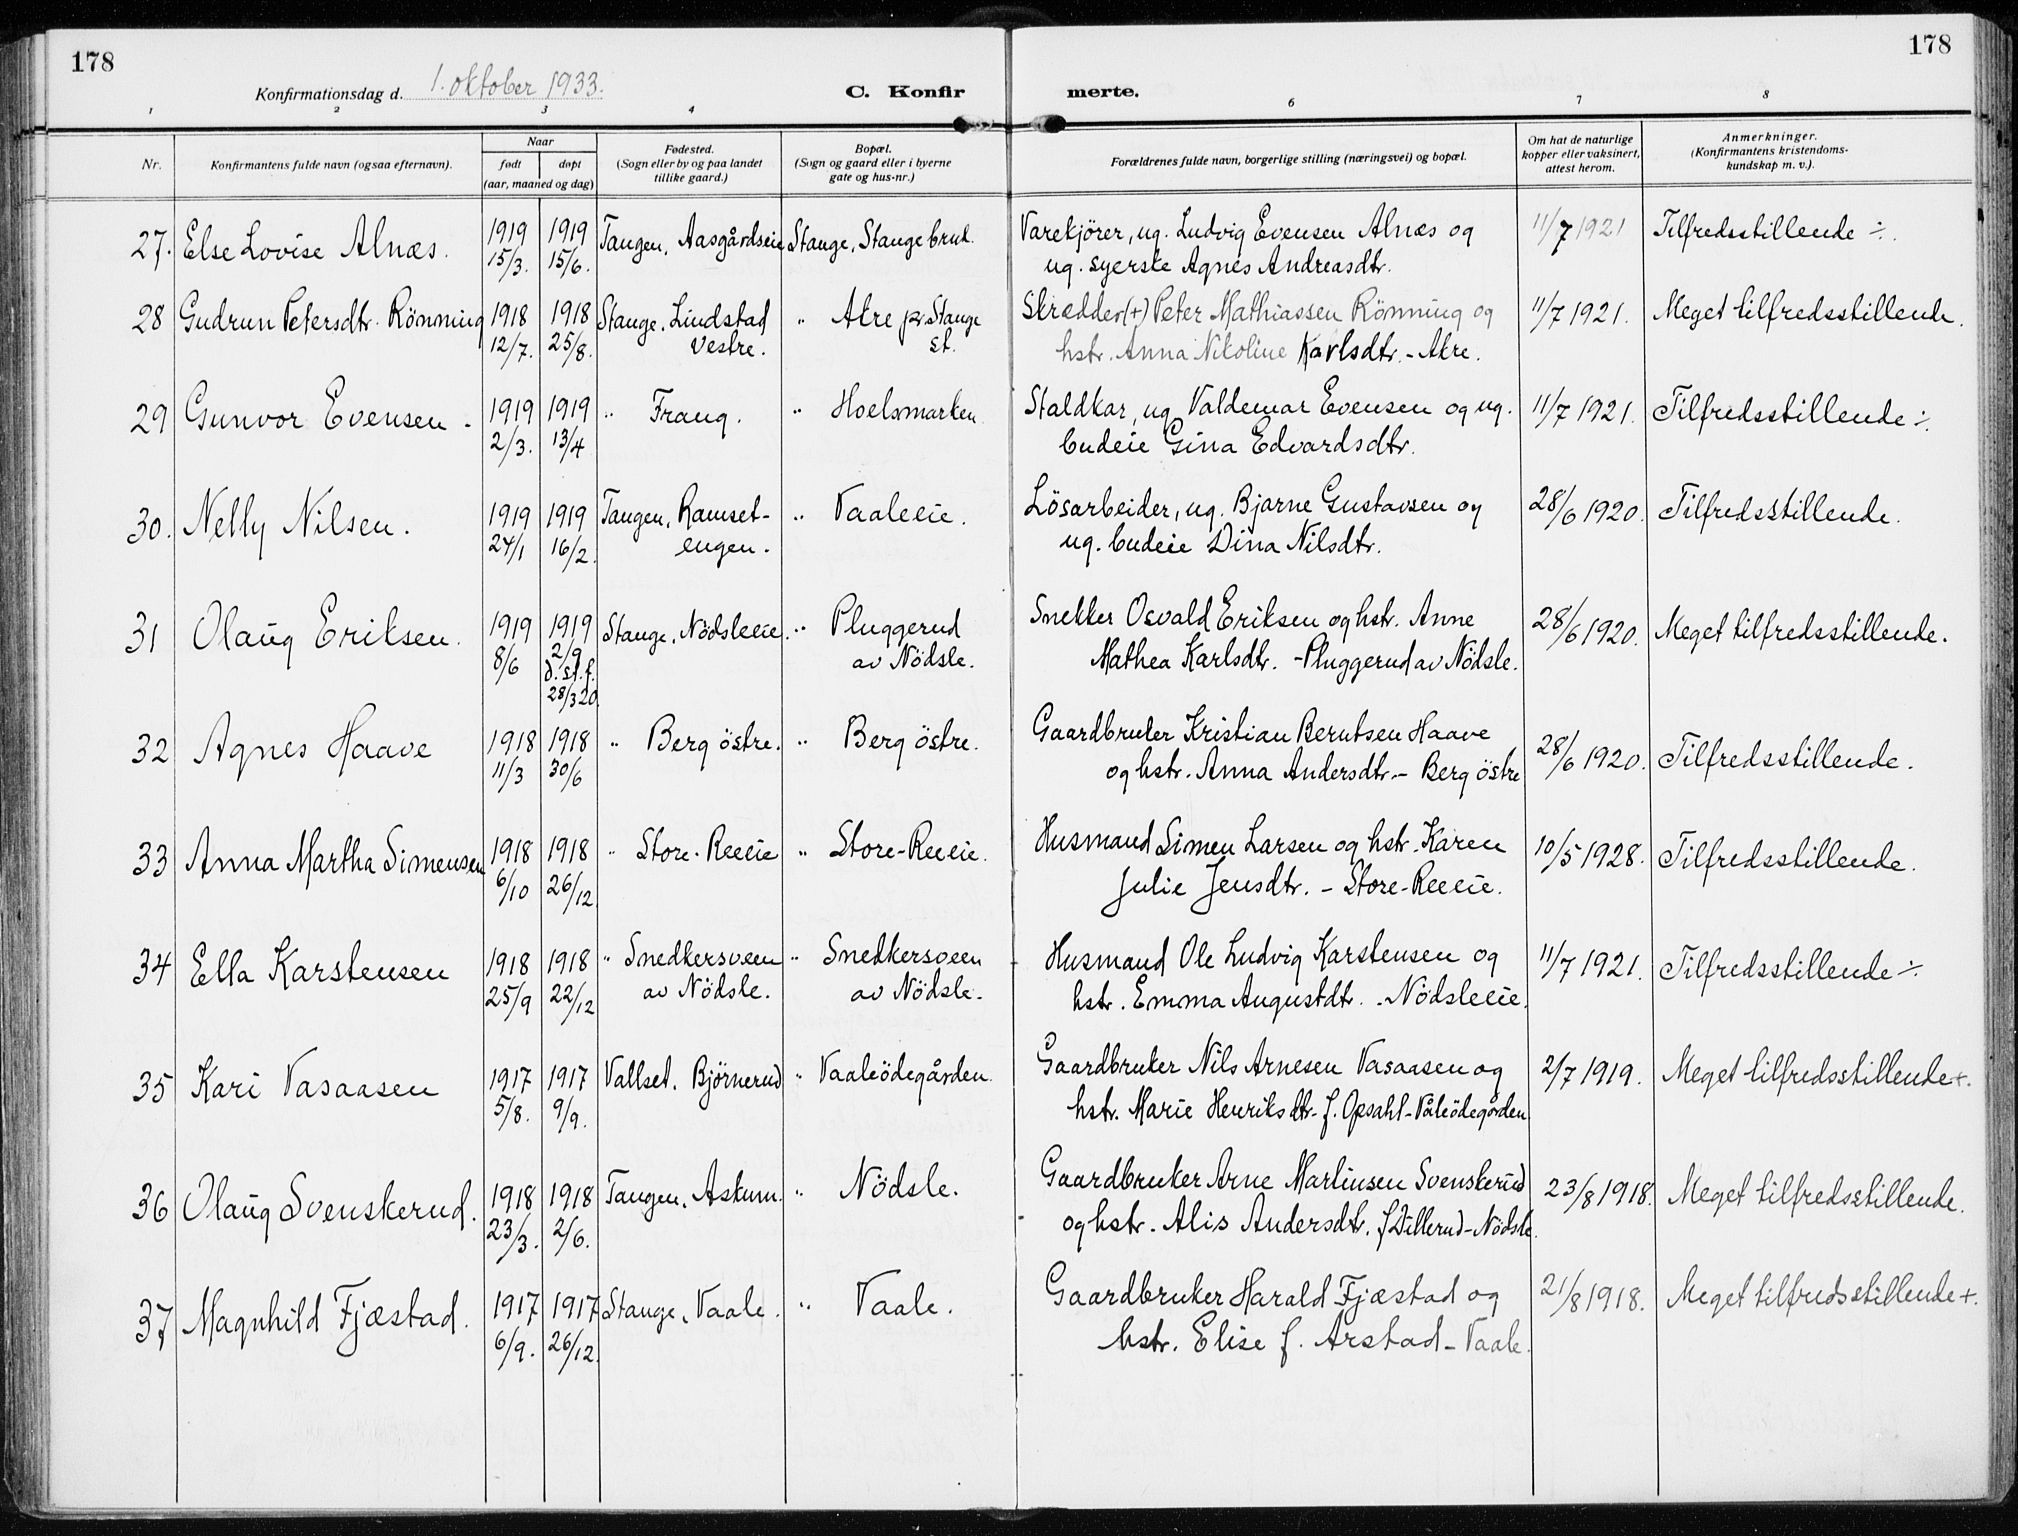 178
178
Konfirmationsdag d. 1. oktober 1933.
C. Konfir merte.
1 2 3 4 6 7 8
Nr.
Konfirmantens fulde navn (ogsaa efternavn).
Naar
født
døpt
(aar, maaned og dag)
Fødested.
(Sogn eller by og paa landet
tillike gaard.)
Bopæl.
(Sogn og gaard eller i byerne
gate og hus-nr.)
Forældrenes fulde navn, borgerlige stilling (næringsvei) og bopæl.
Om hat de naturlige
kopper eller vaksinert,
attest herom.
Anmerkninger.
(Konfirmantens kristendoms-
kundskap m. v.).
27. Else Lovise Alnæs. 1919 1919 Tangen, Aasgårdseie Stange, Stangebruk. Varekjörer, ug. Ludvig Evensen Alnæs og 11/7 1921 Tilfredsstillende ÷.
15/3. 15/6. ug. syerske Agnes Andreasdtr.
28 Gudrun Petersdtr. Rönning 1918 1918 Stange, Lindstad " Akre pr. Stange Skrædder (+) Peter Mathiassen Rönning og 11/7 1921. Meget tilfredsstillende.
12/7. 25/8. Vestre. st. hstr. Anna Nikoline Karlsdtr. - Akre.
29 Gunvor Evensen. 1919 1919 " Frang. " Hoelsmarken Staldkar, ug. Valdemar Evensen og ug. 11/7 1921. Tilfredsstillende ÷.
2/3. 13/4 budeie Gina Edvardsdtr.
30. Nelly Nilsen. 1919 1919 Tangen, Ramset- " Vaaleeie. Lösarbeider, ug. Bjarne Gustavsen og 28/6 1920. Tilfredsstillende.
24/1 16/2. engen. ug. budeie Dina Nilsdtr.
31 Olaug Eriksen. 1919 1919 Stange, Nödsleeie. " Pluggerud Snekker Osvald Eriksen og hstr. Anne 28/6 1920. Meget tilfredsstillende.
8/6 2/9 av Nödsle. Mathea Karlsdtr. - Pluggerud av Nödsle.
d. st. f.
28/3 20.
32 Agnes Haave 1918 1918 " Berg östre. " Berg östre. Gaardbruker Kristian Berntsen Haave 28/6 1920. Tilfredsstillende.
11/3 30/6 og hstr. Anna Andersdtr. - Berg östre
33 Anna Martha Simensen 1918 1918 " Store-Reeeie " Store-Reeeie. Husmand Simen Larsen og hstr. Karen 10/5 1928. Tilfredsstillende.
6/10 26/12. Julie Jensdtr. - Store-Reeeie.
34 Ella Karstensen 1918 1918 " Snedkersveen " Snetkersveen Husmand Ole Ludvig Karstensen og 11/7 1921. Tilfredsstillende ÷.
25/9 22/12 av Nödsle. av Nödsle. hstr. Emma Augustdtr. - Nödsleeie.
35 Kari Vasaasen 1917 1917 Vallset. Björnerud " Vaaleödegården. Gaardbruker Nils Arnesen Vasaasen og 2/7 1919. Meget tilfredsstillende +.
5/8. 9/9. hstr. Marie Henriksdtr. f. Opsahl - Våleödegården
36 Olaug Svenskerud. 1918 1918 Tangen, Askum. " Nödsle. Gaardbruker Arne Martinsen Svenskerud 23/8 1918. Meget tilfredsstillende.
23/3. 2/6. og hstr. Alis Andersdtr. f. Dillerud - Nödsle.
37 Magnhild Fjæstad. 1917 1917 Stange, Vaale. " Vaale. Gaardbruker Harald Fjæstad og 21/8 1918. Meget tilfredsstillende +.
6/9. 26/12. hstr. Elise f. Arstad - Vaale.